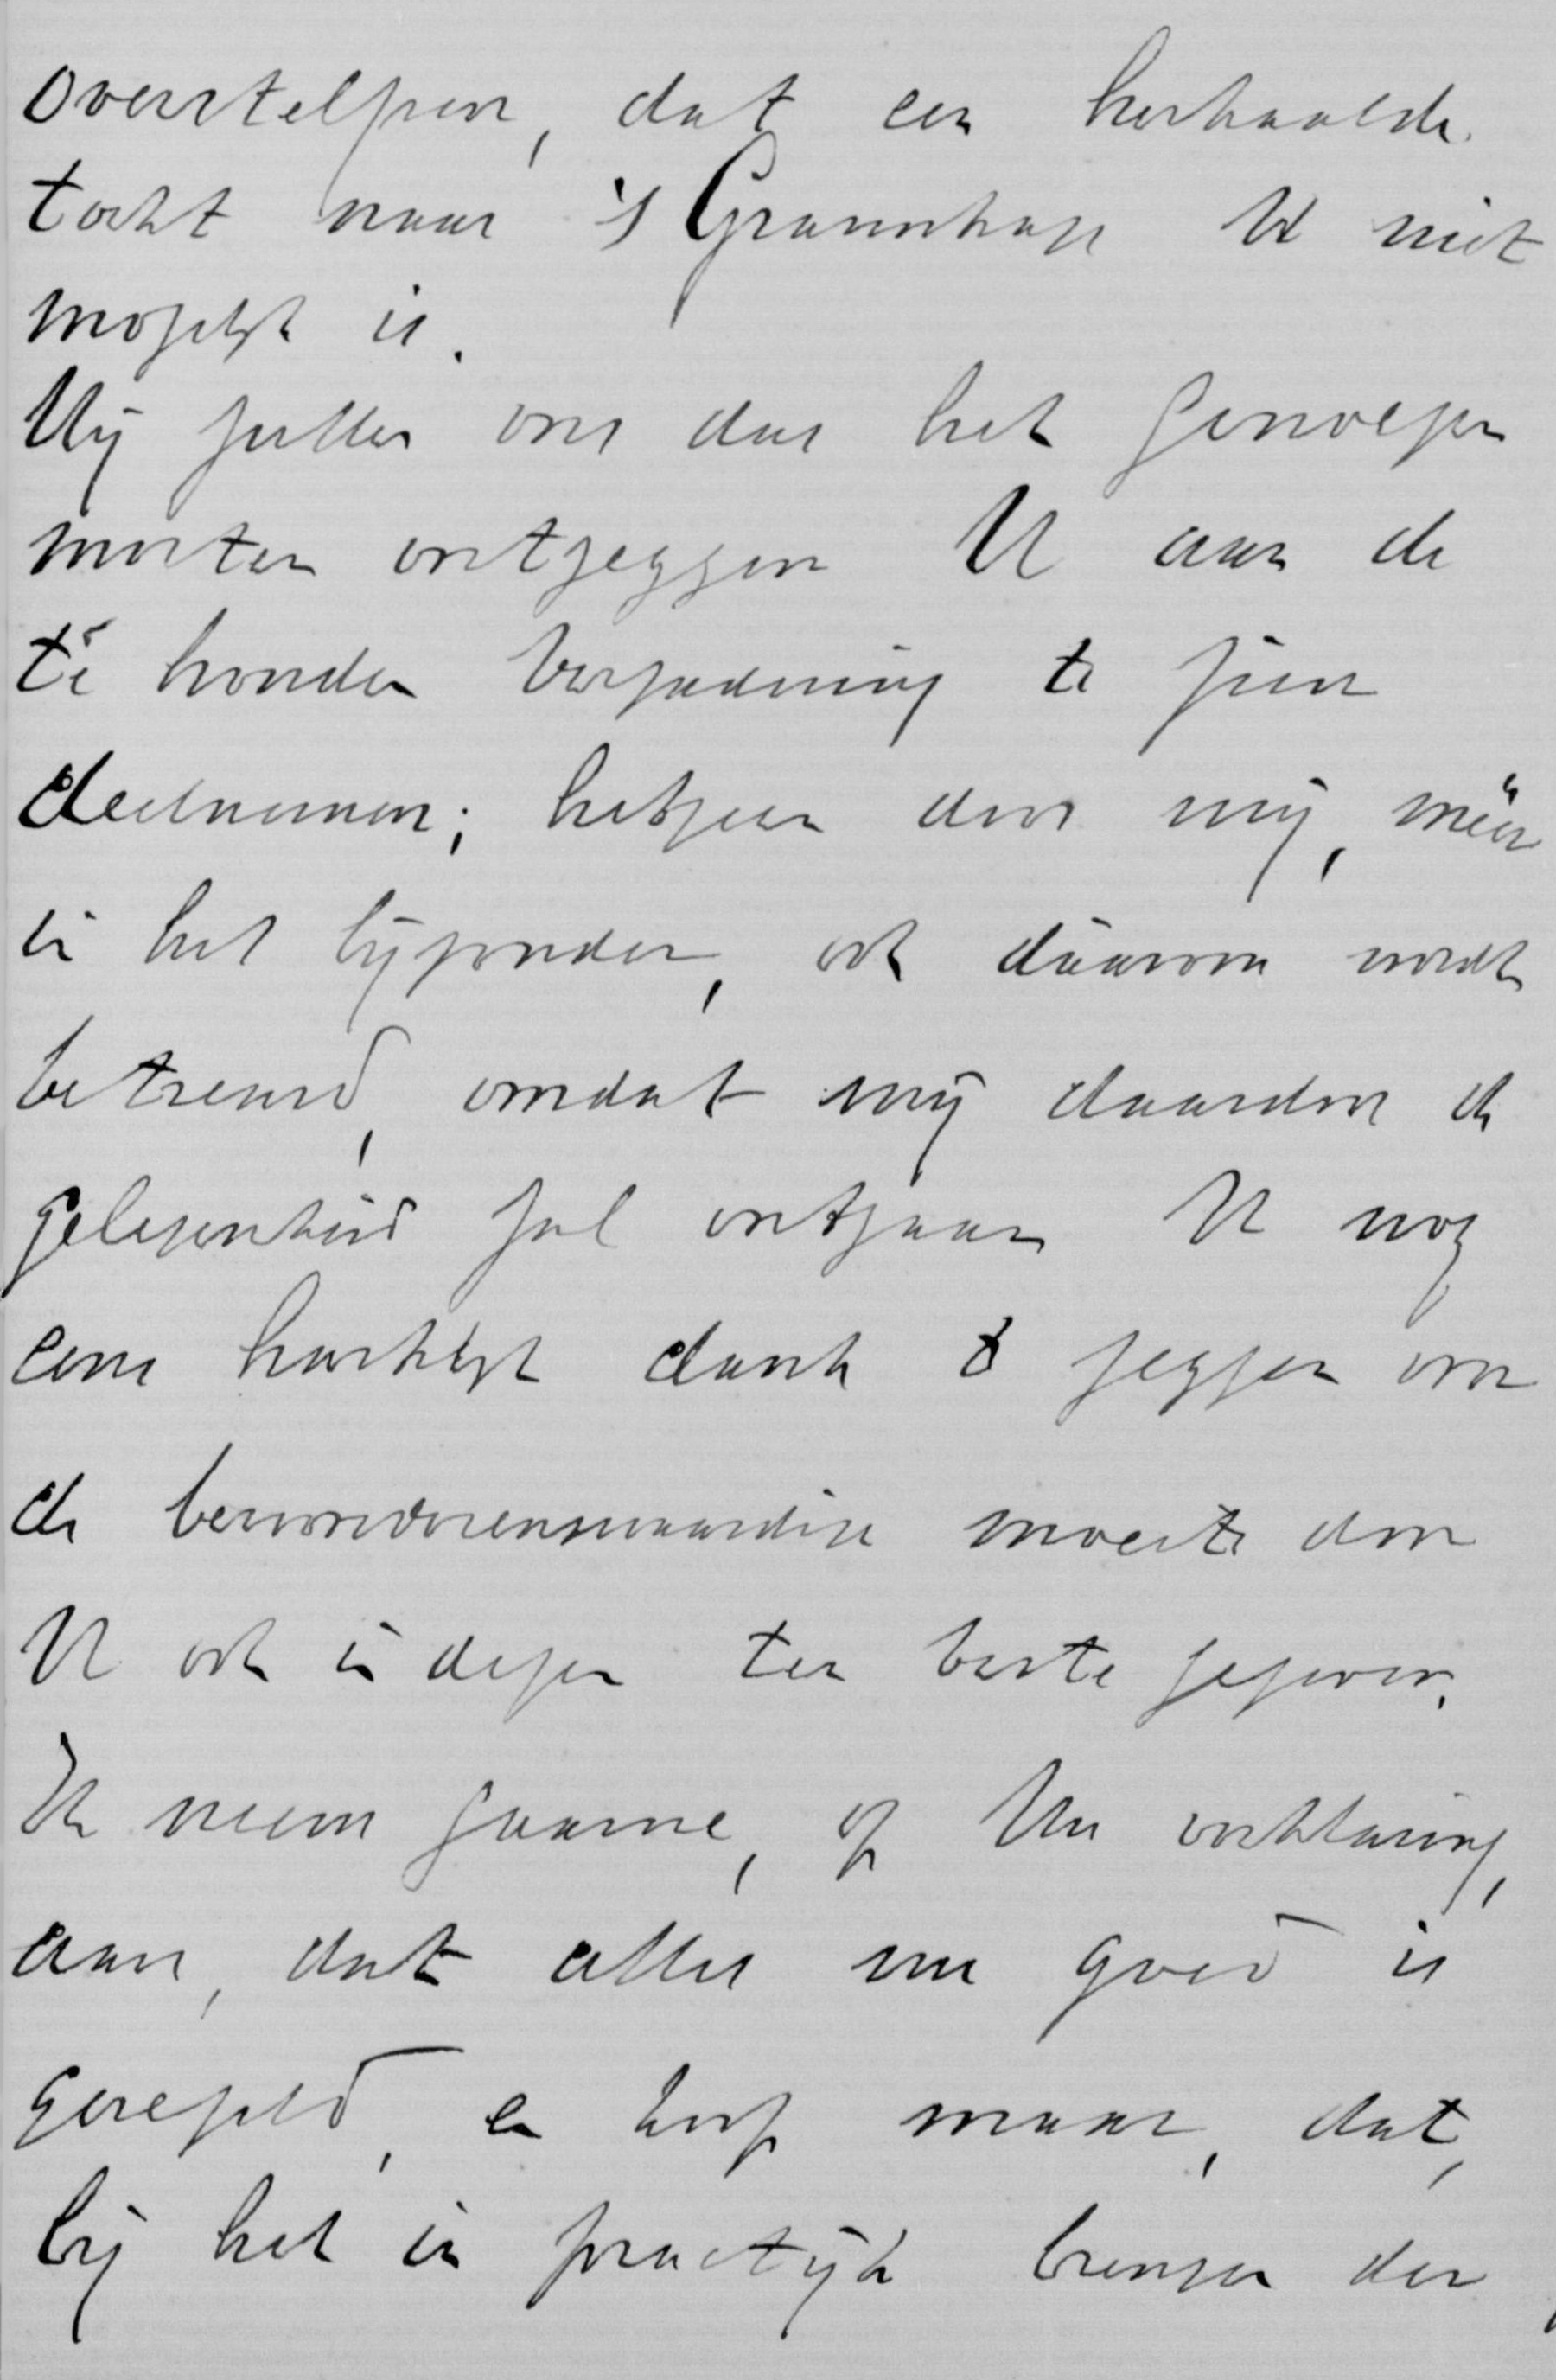 overstelpen, dat een herhaalde
tocht naar 's Gravenhage U niet
mogelijk is.
Wij zullen ons dus het genoegen
moeten ontzeggen U aan de
te houden vergadering te zien
deelnemen; hetgeen door mij, meer
in het bijzonder, ook dáárom wordt
betreurd, omdat mij daardoor de
gelegenheid zal ontgaan U nog
eens hartelijk dank te zeggen om
de bewonderenswaardige moeite door
U ook in dezen ten beste gegeven.
Ik neem gaarne, op Uw verklaring,
aan, dat alles nu goed is
geregeld, en hoop maar, dat,
bij het in practijk brengen der